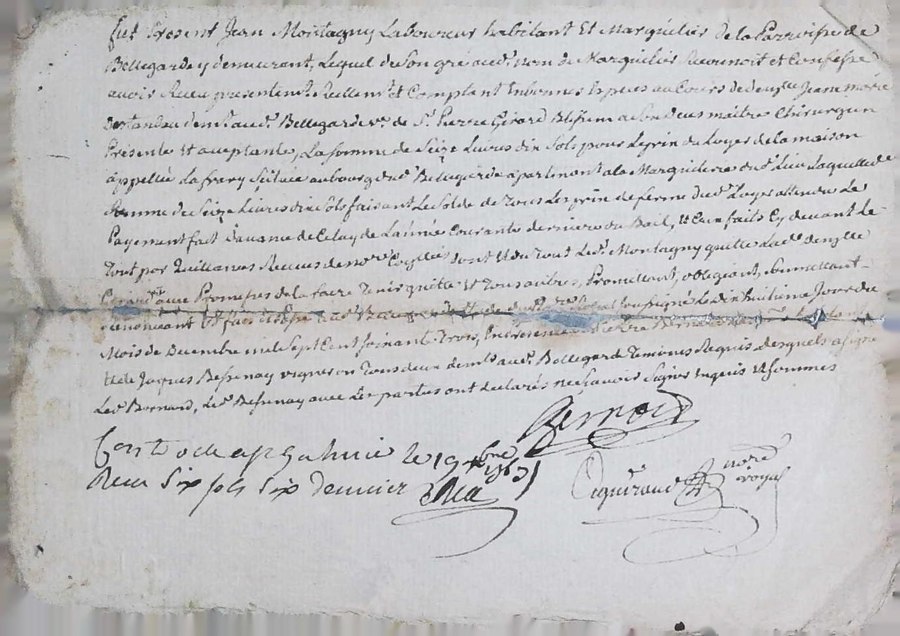 fut Present Jean Montagny Laboureur habitant Et Marguilier de la Parroisse de
Bellegarde y demeurant, Lequel de Son gré aud.t nom de Marguilier Reconnoit et Confesse
avoir Receu presentem.t Reellem.t et Comptant En bonnes Especes au Cours de dem.lle Jeanne Marie
demt aud. Bellegarde v.ve de S.r Pierre Girard vivant maître Chirurgien
Présente Et acceptante, La somme de Seize Livres dix Sols pour Le prix du Loyer de la maison
appellée La frary Scituée au bourg dud. Bellegarde apartenent a la Marguillerie dud. Lieu Laquelle de
Somme de Seize Livres dix Sols faisant Le Solde de Tous Les prix de ferme dud. Loyer attendu Le
Payement fait d'avance de Celuy de L'année Courante derniere du Bail, Et Ceux faits Cy devant Le
Tout par Quittances Receues de nore dont Et du Tout Led. Montagny quitte Lad. dem.lle
Girard avec Promesses de la faire Tenir quitte Et Tous autres, Promettant, obligeant, Soumettant
Renonçant Et fait et Passé Soussigné Le dix huitieme Jour du
Mois de Decembre mil Sept Cent Soixante Trois, En presence de Pierre Bernard
Et de Jaques Bessenay vigneron Tous deux dem.ts aud. Bellegarde Temoins Requis desquels a Signé
Led. Bernard, Led. Bessenay avec Les parties ont declarés ne Sçavoir Signer Enquis Et Sommés
Bernard
Controllé a le 19 xbre 1763
Receu Six sols Six denier
nore royal